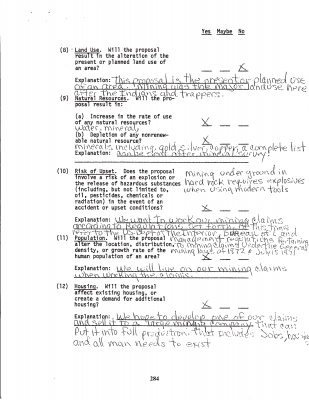 Yes Maybe No
(8) Land Use. Will the proposal
result in the alteration of the
present or planned land use of
an area? X
Explanation: This proposal is the present or planned use
of an area. Mining was the major land use here
after the Indians and trappers.
(9) Natural Resources. Will the pro-
posal result in:
(a) Increase in the rate of use
of any natural resources? X
Water, mineral,
(b) Depletion of any nonrenew-
able natural resource? X
minerals including, gold, silver, copper, a complete list
Explanation: can be had after mineral survey!
(10) Risk of Upset. Does the proposal mining under ground in
involve a risk of an explosion or hard rock requires explosives
the release of hazardous substances when using modern tools
(including, but not limited to,
oil, pesticides, chemicals or
radiation) in the event of an
accident or upset conditions? X
Explanation: We want to work our mining claims
according to Regulations, set forth, at this time
refer to the US Dept of the Interior, Bureau of L and
(11) Population. Will the proposal management regulations Pertaining
alter the location, distribution, to mining claims Under the General
density, or growth rate of the mining law of 1872 + July 15 1981
human population of an area? X
Explanation: We will live on our mining claims
when working the claims.
(12) Housing. Will the proposal
affect existing housing, or
create a demand for additional
housing? X
Explanation: We hope to develop one of our claims
and sell it to a large mining company that can
Put it into full production. That includes Jobs, housing
and all man needs to exist
284